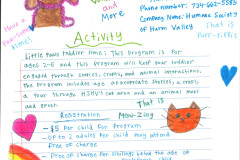 and More
Phone number: 734-662-5585
Company Name: Humane Society
of Huron Valley
That is
Purr-rific
Have a
Pawsome
time!
Activity
Little Paws Toddler Time: This program is for
ages 2-5 and this program will keep your toddler
engaged through stories, crafts, and animal interactions.
The program includes age appropriate stories, a craft,
a tour through HSHV's cat area and an animal meet
and greet.
That is
Meow-Zing
Registration
$5 Per child For program
Up to 2 adults per child may attend
Free of charge
Free of charge For siblings below the age of